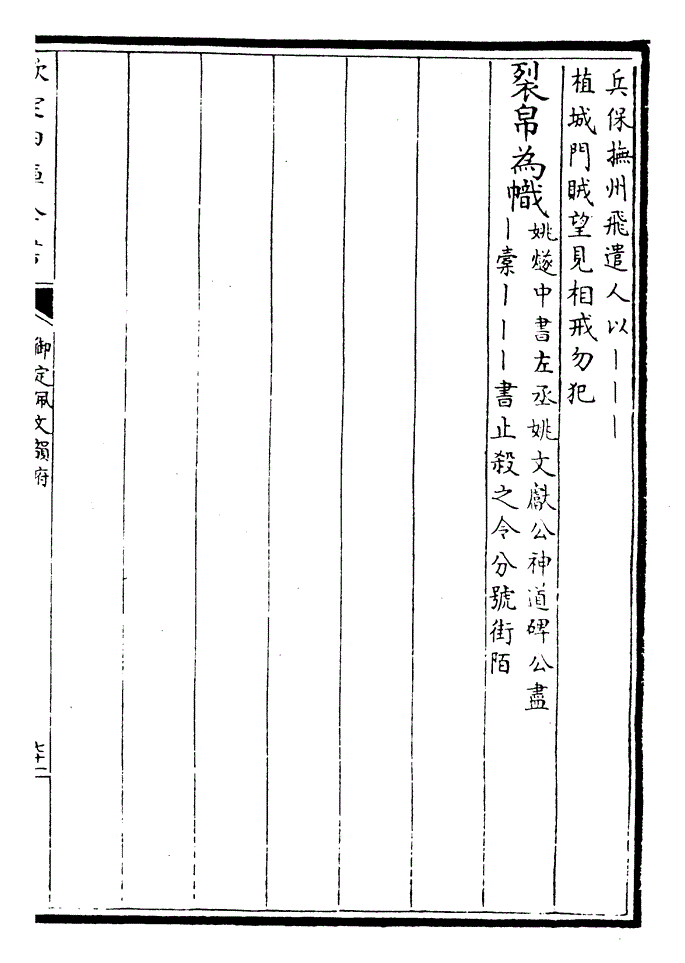 兵保撫州飛遣人以丨丨丨
植城門賊望見相戒勿犯
裂帛為幟
姚燧中書左丞姚文獻公神道碑公盡
丨橐丨丨丨書止殺之令分號街陌
御定佩文韻府
七十一